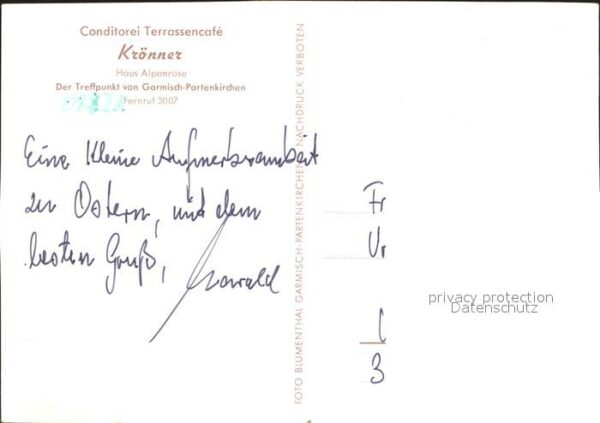 Conditorei Terrassencafé
Krönner
Haus Alpenrose
Der Treffpunkt von Garmisch-Partenkirchen
Fernruf 3007
Eine kleine Aufmerksamkeit
zu Ostern, mit dem
besten Gruß,
FOTO BLUMENTHAL GARMISCH-PARTENKIRCHEN NACHDRUCK VERBOTEN
Fr
Ur
3
privacy protection
Datenschutz